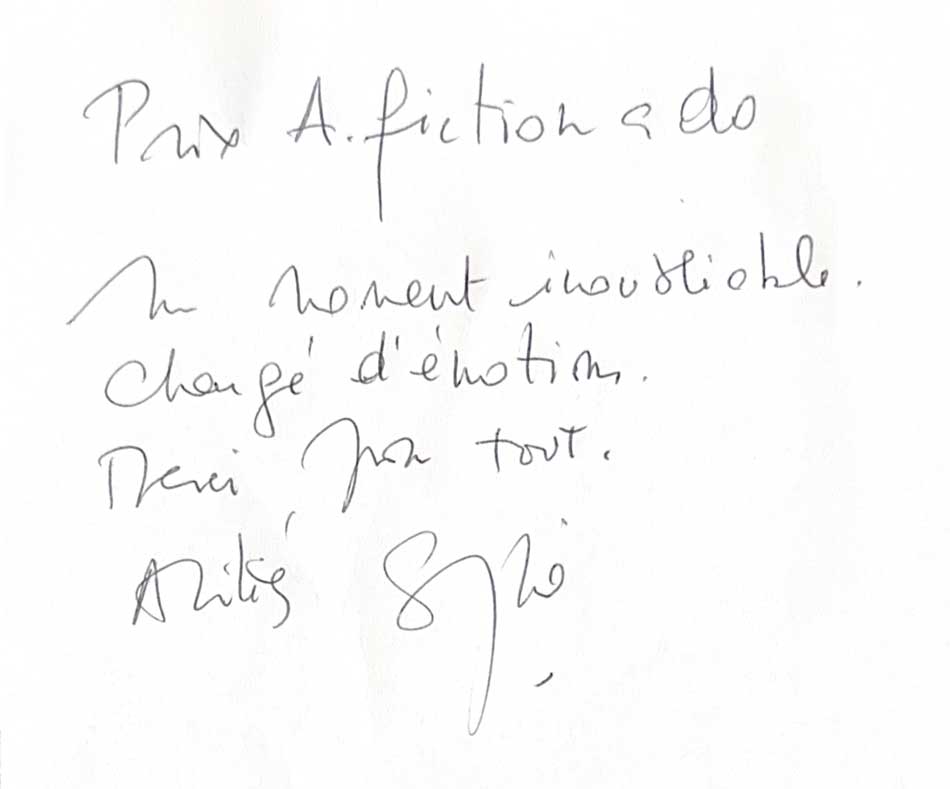 Prix A.fiction ado
Un moment inoubliable.
Chargé d'émotion.
Merci pour tout.
Amitiés Sophie